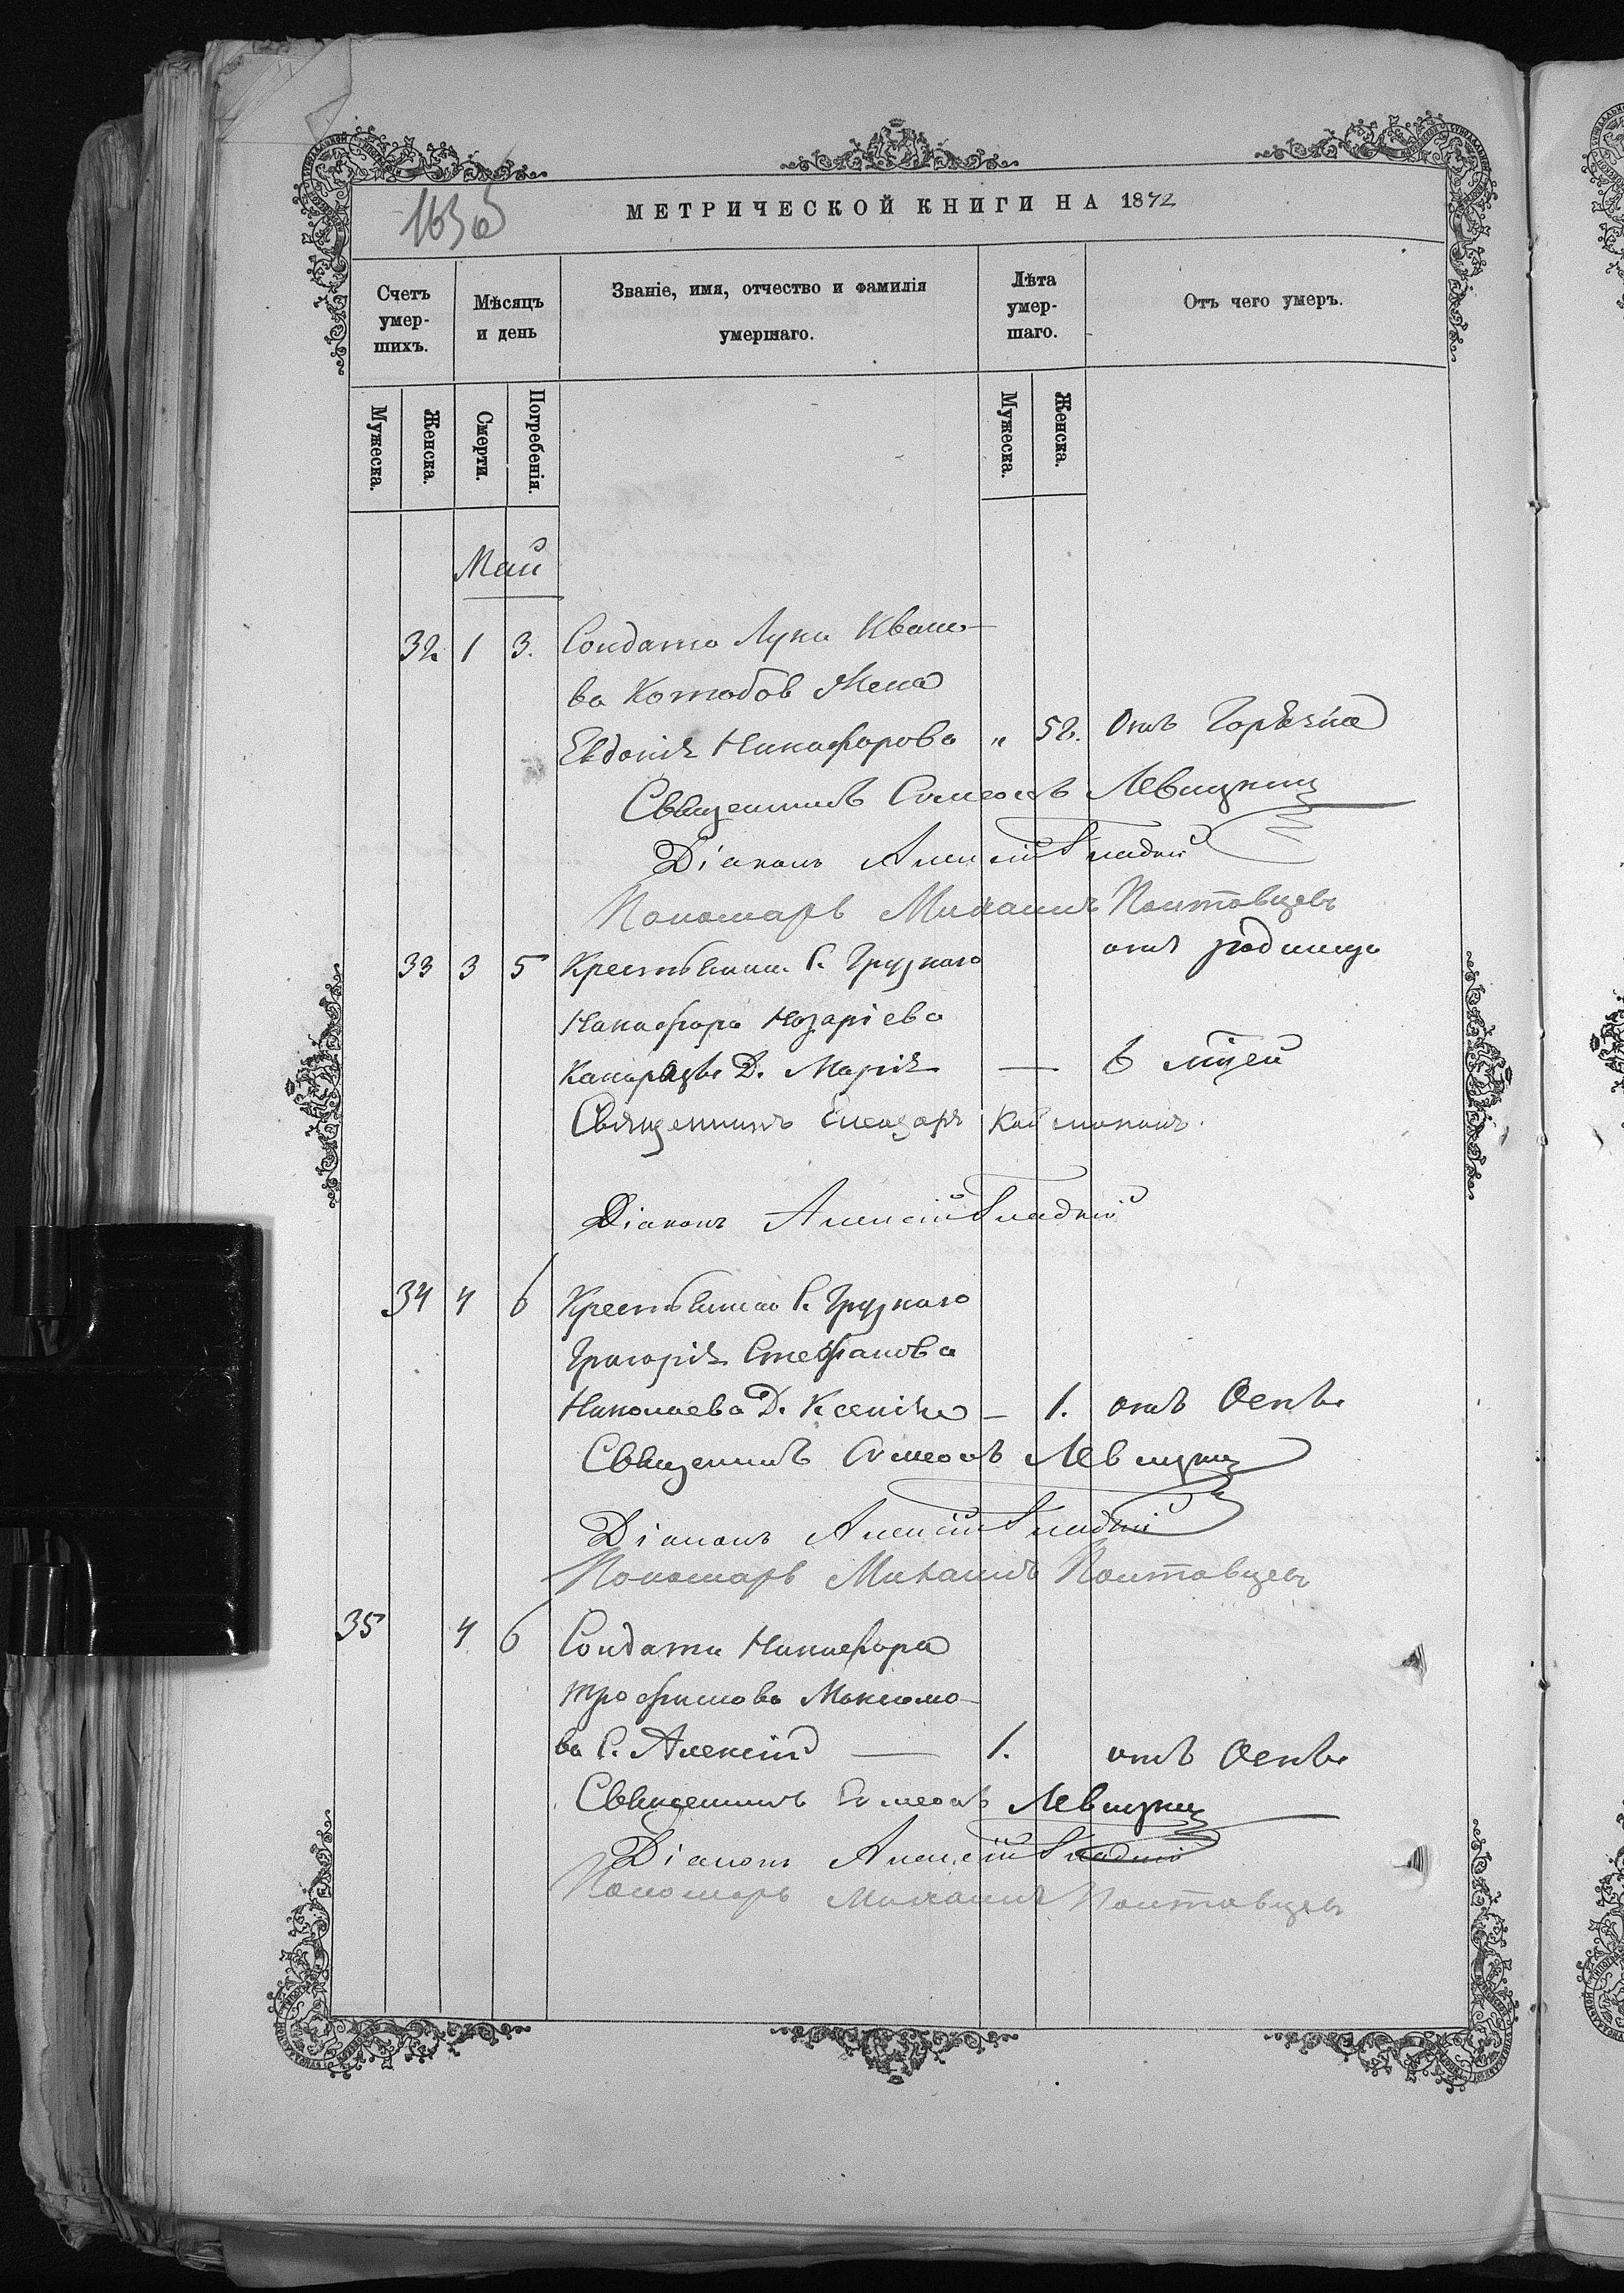 МЕТРИЧЕСКОЙ КНИГИ НА 1872
Счетъ умер-шихъ.
Мѣсяцъ и день
Званіе, имя, отчество и фамилія умершаго.
Лѣта умер-шаго.
Отъ чего умеръ.
Мужеска. Женска. Смерти. Погребенія. Мужеска. Женска.
Май
32 1 3. Солдата Луки Ивано-
ва жена
Евдокія Никифорова „ 52. Отъ Горячка
Священникъ Симеонъ Левицкій
Діаконъ Алексій Гладкій
Пономарь Михаилъ Полтавцевъ
33 3 5 Крестьянина С. Грузкаго отъ родимца
Никифора Назаріева
Д. Марія — 6 мцей
Священникъ Елеазаръ
Діаконъ Алексій Гладкій
34 4 6 Крестьянина С. Грузкаго
Григорія Стефанова
Николаева Д. Ксенія — 1. отъ Оспы
Священникъ Симеонъ Левицкій
Діаконъ Алексій Гладкій
Пономарь Михаилъ Полтавцевъ
35 4 6 Солдата Никифора
Трофимова Максимо-
ва С. Алексій — 1. отъ Оспы
Священникъ Симеонъ Левицкій
Діаконъ Алексій Гладкій
Пономарь Михаилъ Полтавцевъ